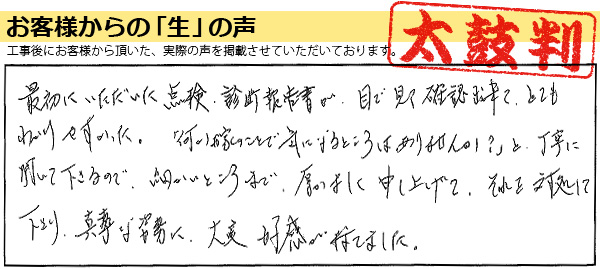 お客様からの「生」の声
工事後にお客様から頂いた、実際の声を掲載させていただいております。
太鼓判
最初にいただいた点検・診断報告書が、目で見て確認出来て、とても
わかりやすかった。「何か家のことで気になるところはありませんか?」と、丁寧に
聞いて下さるので、細かいところまで、厚かましく申し上げて、それを対処して
下さり、真摯な姿勢に、大変好感が持てました。